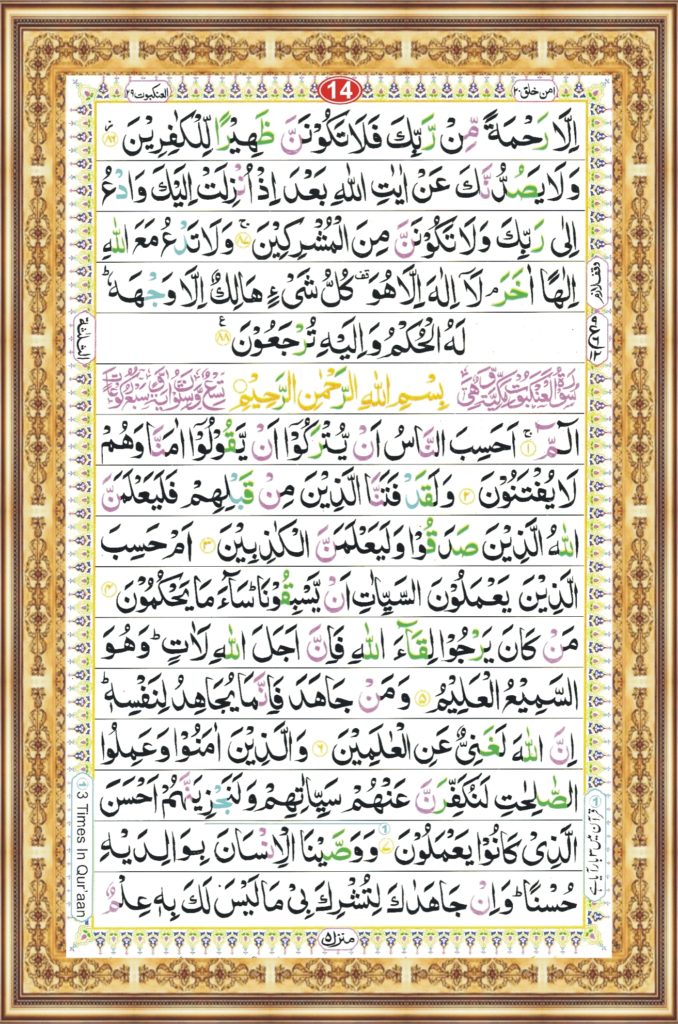 امن خلق ۲۰
14
العنکبوت ۲۹
اِلَّا رَحْمَةً مِّنْ رَّبِّكَ فَلَا تَكُوْنَنَّ ظَهِيْرًا لِّلْكٰفِرِيْنَ ۸۶
وَلَا يَصُدُّنَّكَ عَنْ اٰيٰتِ اللّٰهِ بَعْدَ اِذْ اُنْزِلَتْ اِلَيْكَ وَادْعُ
اِلٰى رَبِّكَ وَلَا تَكُوْنَنَّ مِنَ الْمُشْرِكِيْنَ ۚ ۸۷ وَلَا تَدْعُ مَعَ اللّٰهِ
اِلٰهًا اٰخَرَ ۘ لَآ اِلٰهَ اِلَّا هُوَ ۟قف كُلُّ شَيْءٍ هَالِكٌ اِلَّا وَجْهَهٗ ؕ
لَهُ الْحُكْمُ وَاِلَيْهِ تُرْجَعُوْنَ ۸۸ ع
وقف لازم
الثلٰثة
بِسْمِ اللّٰهِ الرَّحْمٰنِ الرَّحِيْمِ
الٓمّٓ ۚ ۱ اَحَسِبَ النَّاسُ اَنْ يُّتْرَكُوْٓا اَنْ يَّقُوْلُوْٓا اٰمَنَّا وَهُمْ
لَا يُفْتَنُوْنَ ۲ وَلَقَدْ فَتَنَّا الَّذِيْنَ مِنْ قَبْلِهِمْ فَلَيَعْلَمَنَّ
اللّٰهُ الَّذِيْنَ صَدَقُوْا وَلَيَعْلَمَنَّ الْكٰذِبِيْنَ ۳ اَمْ حَسِبَ
الَّذِيْنَ يَعْمَلُوْنَ السَّيِّاٰتِ اَنْ يَّسْبِقُوْنَا ؕ سَآءَ مَا يَحْكُمُوْنَ ۴
مَنْ كَانَ يَرْجُوْا لِقَآءَ اللّٰهِ فَاِنَّ اَجَلَ اللّٰهِ لَاٰتٍ ؕ وَهُوَ
السَّمِيْعُ الْعَلِيْمُ ۵ وَمَنْ جَاهَدَ فَاِنَّمَا يُجَاهِدُ لِنَفْسِهٖ ؕ
اِنَّ اللّٰهَ لَغَنِيٌّ عَنِ الْعٰلَمِيْنَ ۶ وَالَّذِيْنَ اٰمَنُوْا وَعَمِلُوا
الصّٰلِحٰتِ لَنُكَفِّرَنَّ عَنْهُمْ سَيِّاٰتِهِمْ وَلَنَجْزِيَنَّهُمْ اَحْسَنَ
الَّذِيْ كَانُوْا يَعْمَلُوْنَ ۷ وَوَصَّيْنَا الْاِنْسَانَ بِوَالِدَيْهِ
حُسْنًا ؕ وَاِنْ جَاهَدٰكَ لِتُشْرِكَ بِيْ مَا لَيْسَ لَكَ بِهٖ عِلْمٌ
① قرآن میں ۳ بار آیا ہے
① 3 Times In Qur'aan
منزل ۵